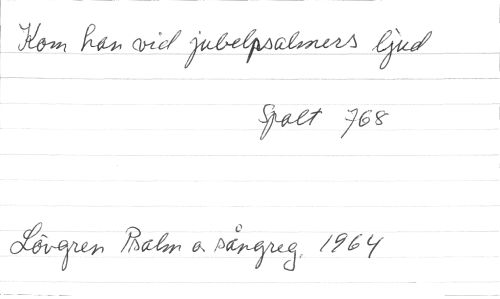 Kom han vid jubelpsalmers ljud
Spalt 768
Lövgren Psalm o. sångreg. 1964